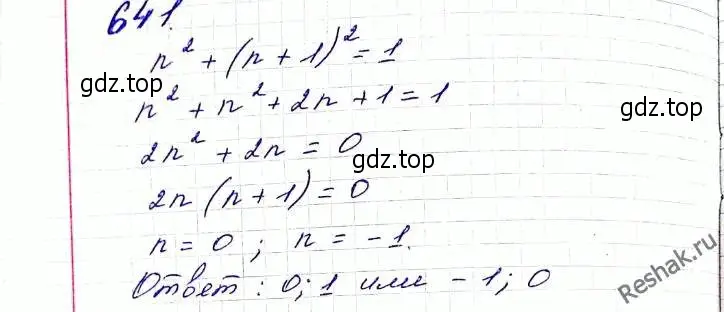 641.
n² + (n + 1)² = 1
gdz.top
n² + n² + 2n + 1 = 1
gdz.top
2n² + 2n = 0
gdz.top
2n (n + 1) = 0
n = 0 ; n = -1.
Ответ : 0; 1 или -1; 0
Reshak.ru